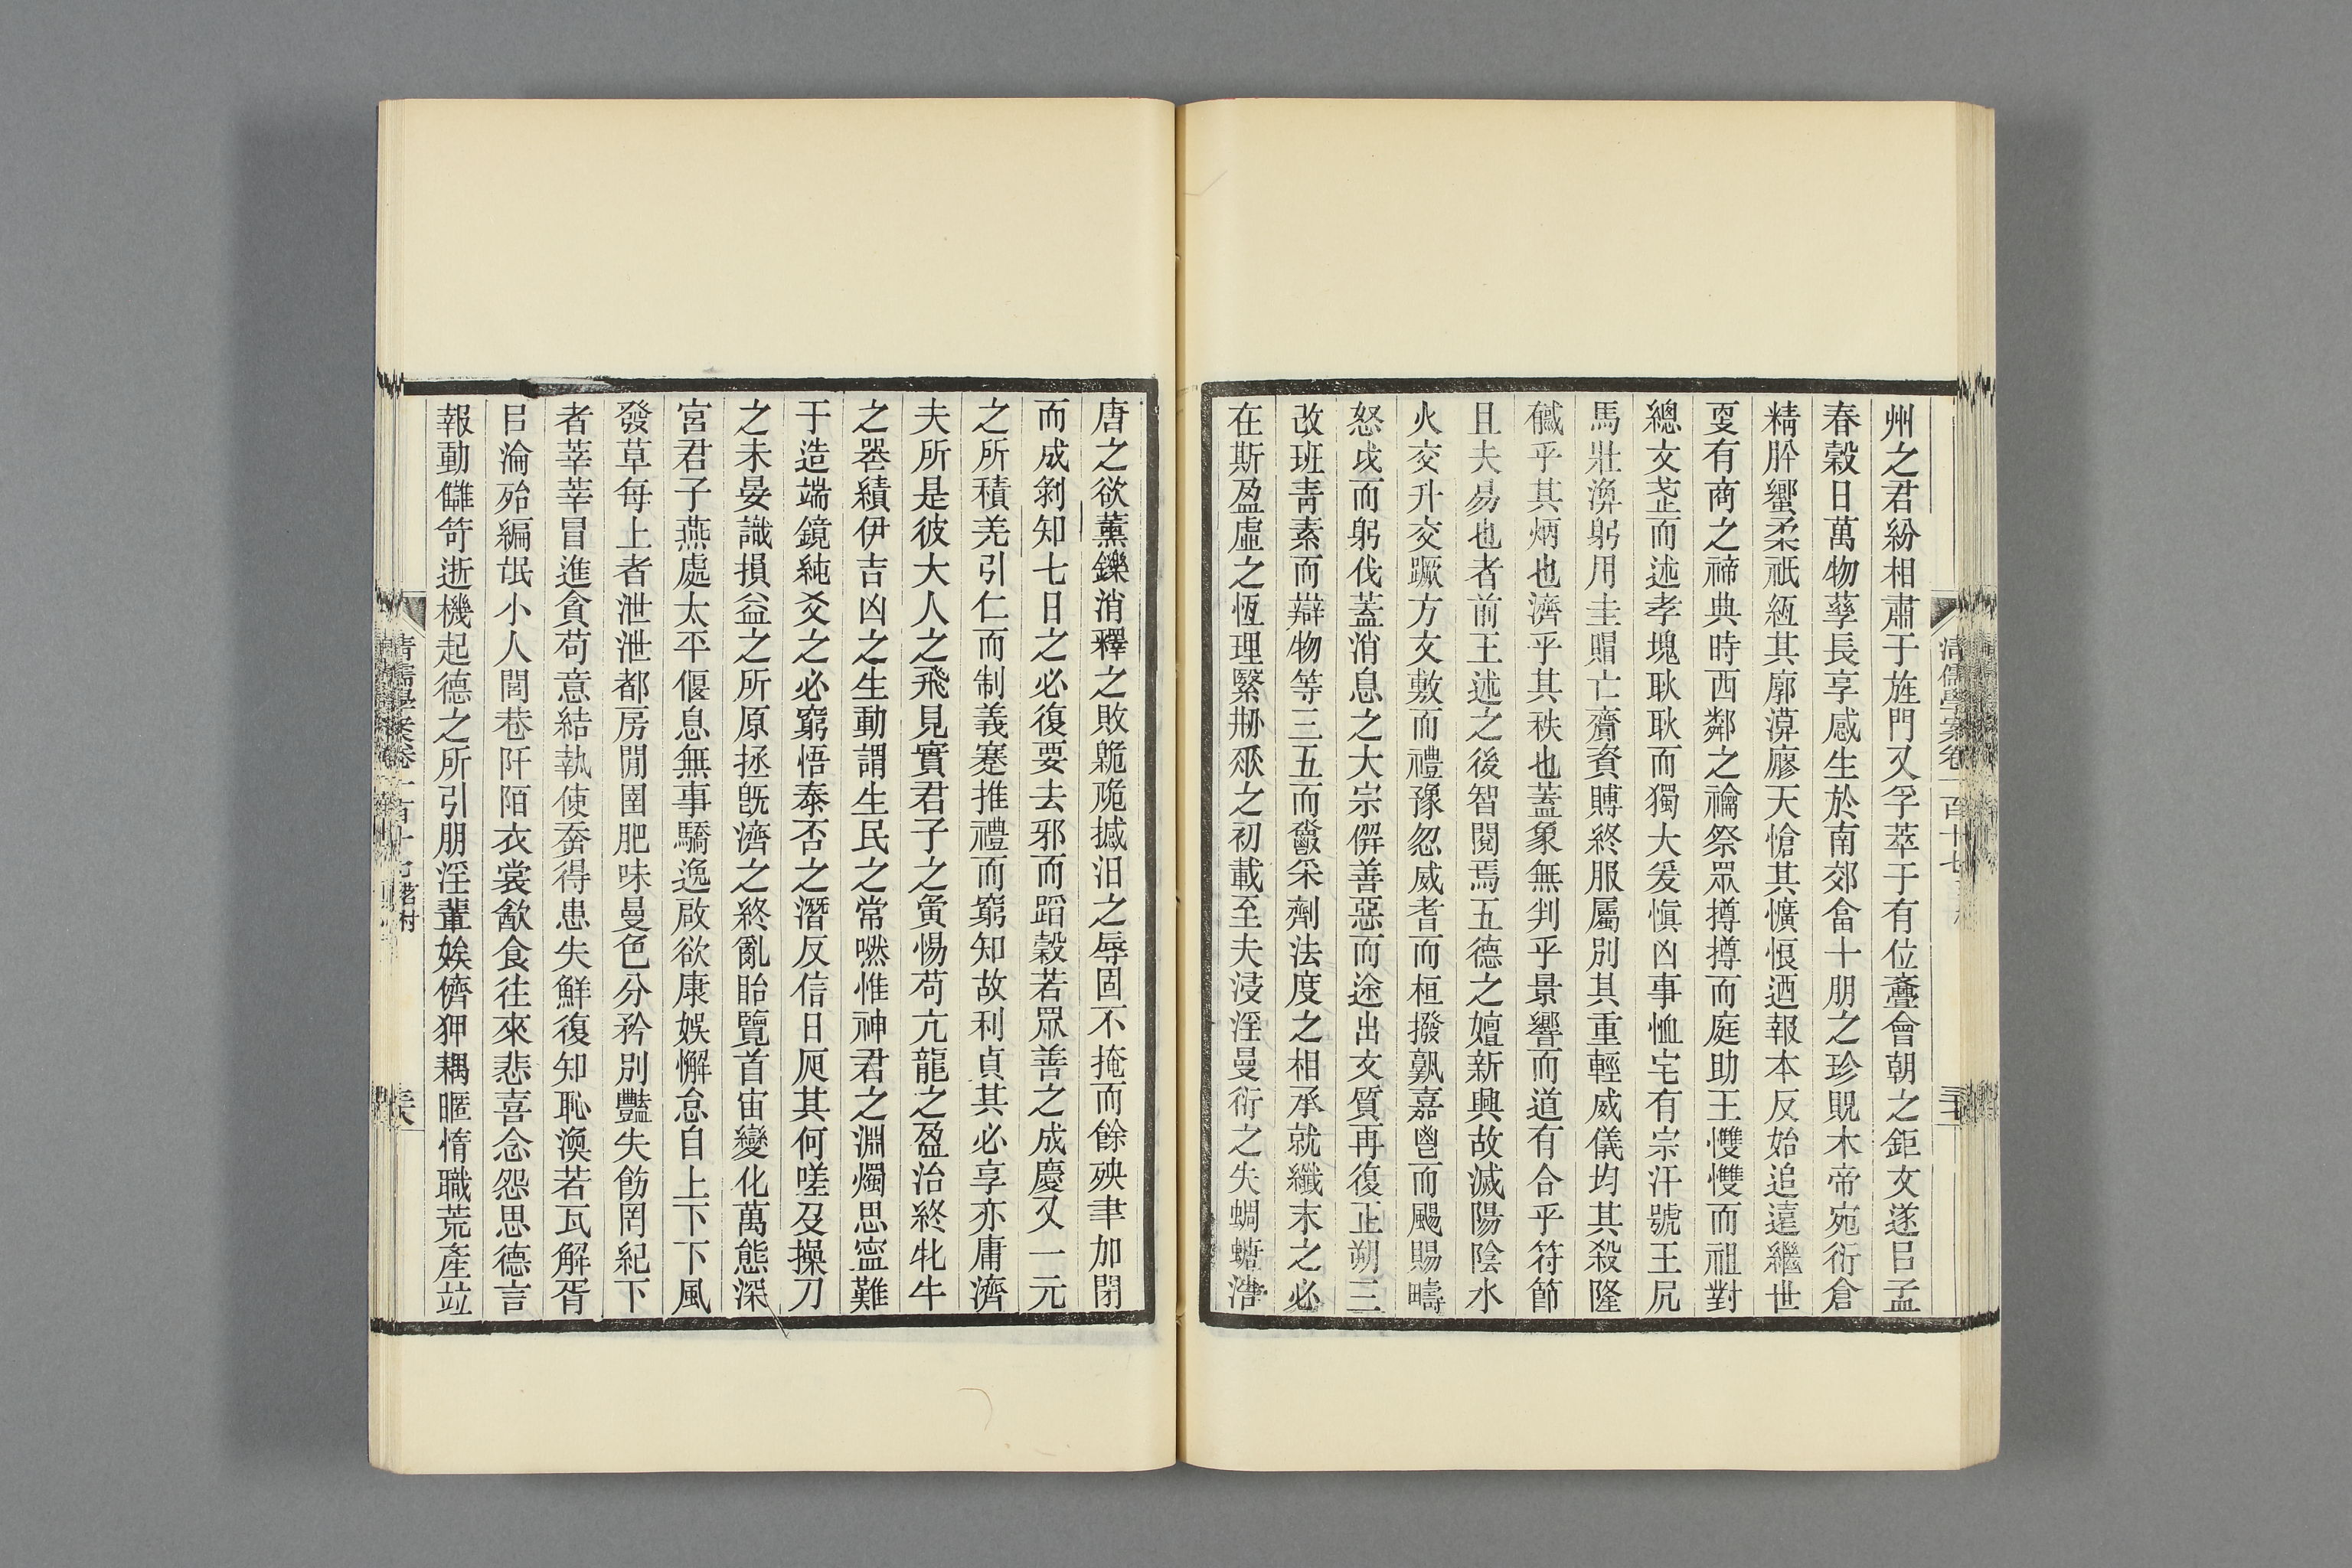 州之君紛相肅于旌門又孚萃于有位薹會朝之鉅文遂㠯孟
春穀日萬物孳長享感生於南郊畣十朋之珍貺木帝宛衍倉
精肸蠁柔祇絚其廓漭廫天愴其懭悢迺報本反始追遠繼世
覂有商之禘典時西鄰之禴祭眾撙撙而庭助王愯愯而祖對
總文茋而述孝塊耿耿而獨大爰愼凶事恤宅有宗汗號王凥
馬壯渙躬用圭賵亡齎資賻終服屬別其重輕威儀均其殺隆
馘乎其炳也濟乎其秩也蓋象無判乎景響而道有合乎符節
且夫易也者前王述之後智閱焉五德之嬗新興故滅陽陰水
火交升交蹶方文敷而禮豫忽威耆而桓撥孰嘉鬯而颺賜疇
怒戉而躬伐蓋消息之大宗僻善惡而途出文質再復正朔三
改班靑素而辯物等三五而黴采劑法度之相承就纖末之必
在斯盈虛之恆理緊㓝𠂢之初載至夫浸淫曼衍之失蜩螗濤
唐之欲薰鑠消釋之敗臲卼撼汨之辱固不掩而餘殃聿加閉
而成剝知七日之必復要去邪而蹈穀若眾善之成慶又一元
之所積羌引仁而制義蹇推禮而窮知故利貞其必享亦庸濟
夫所是彼大人之飛見實君子之夤惕苟亢龍之盈治終牝牛
之嚣績伊吉凶之生動謂生民之常嘫惟神君之淵燭思寍難
于造端鏡純爻之必窮悟泰否之潛反信日昃其何嗟及操刀
之未晏識損益之所原拯旣濟之終亂眙覽首宙變化萬態深
宮君子燕處太平偃息無事驕逸啟欲康娛懈怠自上下下風
發草每上者泄泄都房閒圉肥味曼色分矜別豔失飭罔紀下
者莘莘冒進貪苟意結執使奔得患失鮮復知恥渙若瓦解胥
㠯淪殆編氓小人閭巷阡陌衣裳歠食往來悲喜念怨思德言
報動讎笴逝機起德之所引朋淫輩娭儕狎耦暱惰職荒產竝
清儒學案卷一百十七